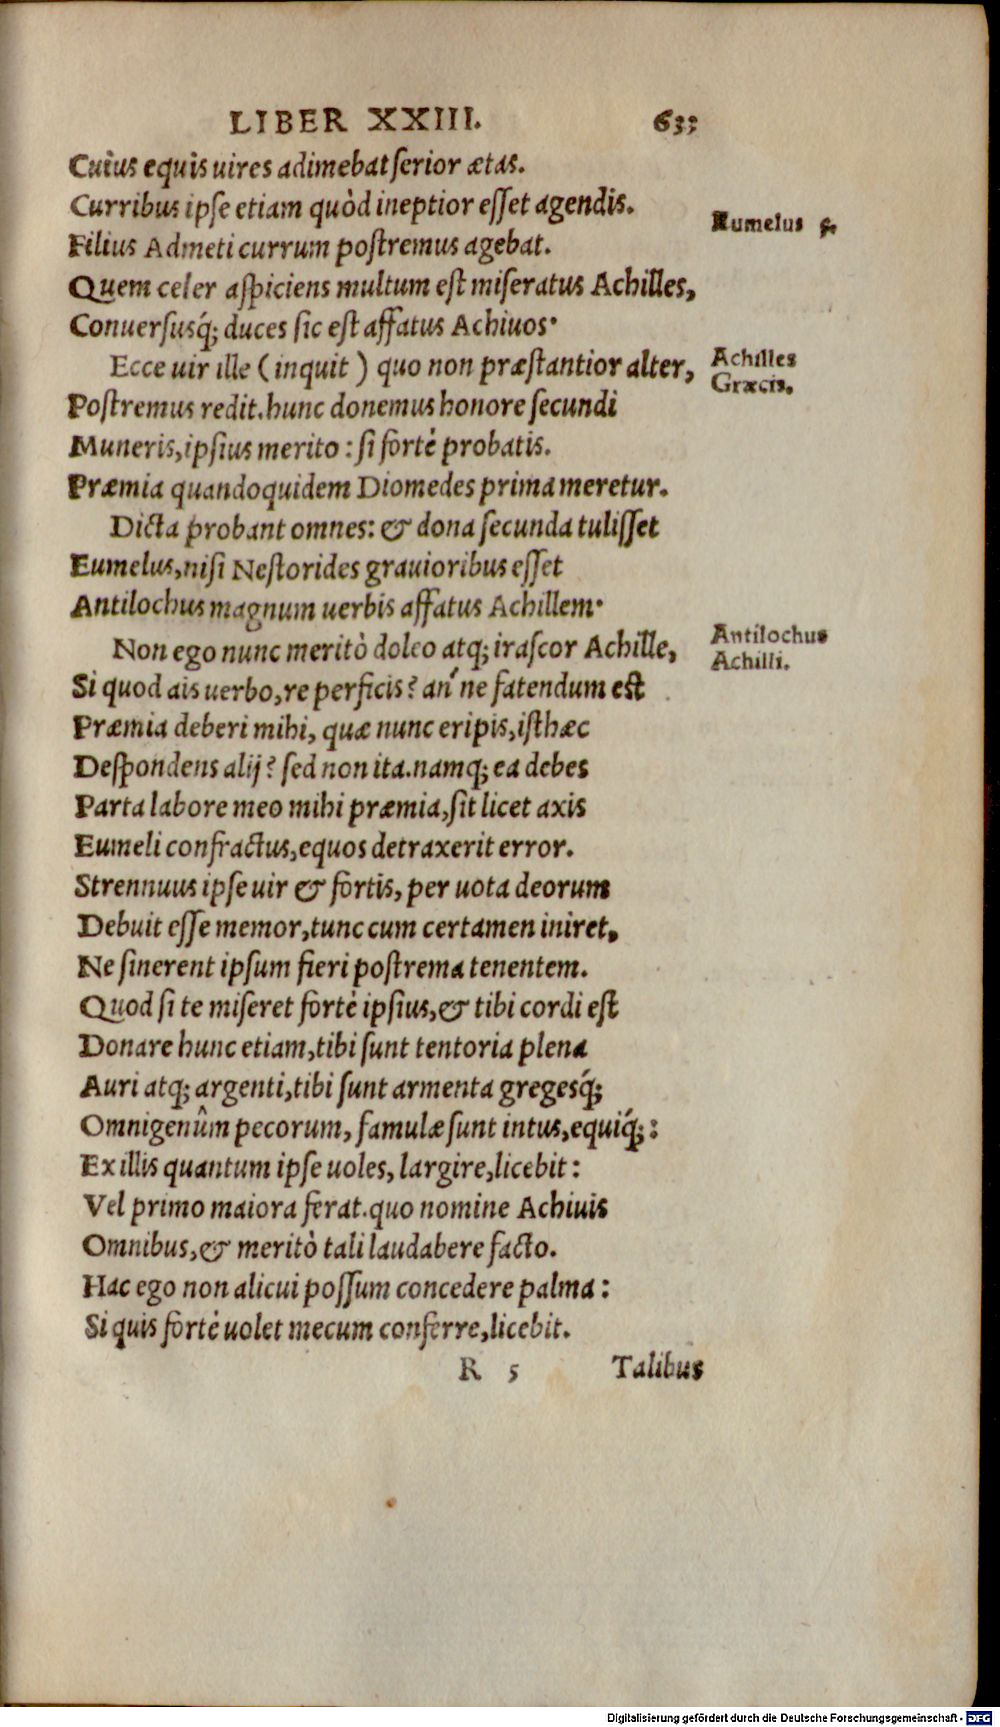 LIBER XXIII. 633
Cuius equis uires adimebat serior ætas.
Curribus ipse etiam quòd ineptior esset agendis.
Eumelus 5.
Filius Admeti currum postremus agebat.
Quem celer aspiciens multum est miseratus Achilles,
Conuersusq́; duces sic est affatus Achiuos.
Ecce uir ille (inquit) quo non præstantior alter,
Achilles
Græcis.
Postremus redit. hunc donemus honore secundi
Muneris, ipsius merito: si fortè probatis.
Præmia quandoquidem Diomedes prima meretur.
Dicta probant omnes: & dona secunda tulisset
Eumelus, nisi Nestorides grauioribus esset
Antilochus magnum uerbis affatus Achillem.
Non ego nunc meritò doleo atq; irascor Achille,
Antilochus
Achilli.
Si quod ais uerbo, re perficis? an' ne fatendum est
Præmia deberi mihi, quæ nunc eripis, isthæc
Despondens alij? sed non ita. namq; ea debes
Parta labore meo mihi præmia, sit licet axis
Eumeli confractus, equos detraxerit error.
Strennuus ipse uir & fortis, per uota deorum
Debuit esse memor, tunc cum certamen iniret,
Ne sinerent ipsum fieri postrema tenentem.
Quod si te miseret fortè ipsius, & tibi cordi est
Donare hunc etiam, tibi sunt tentoria plena
Auri atq; argenti, tibi sunt armenta gregesq́;
Omnigenûm pecorum, famulæ sunt intus, equiq́;:
Ex illis quantum ipse uoles, largire, licebit:
Vel primo maiora ferat. quo nomine Achiuis
Omnibus, & meritò tali laudabere facto.
Hac ego non alicui possum concedere palma:
Si quis fortè uolet mecum conferre, licebit.
R 5 Talibus
Digitalisierung gefördert durch die Deutsche Forschungsgemeinschaft - DFG